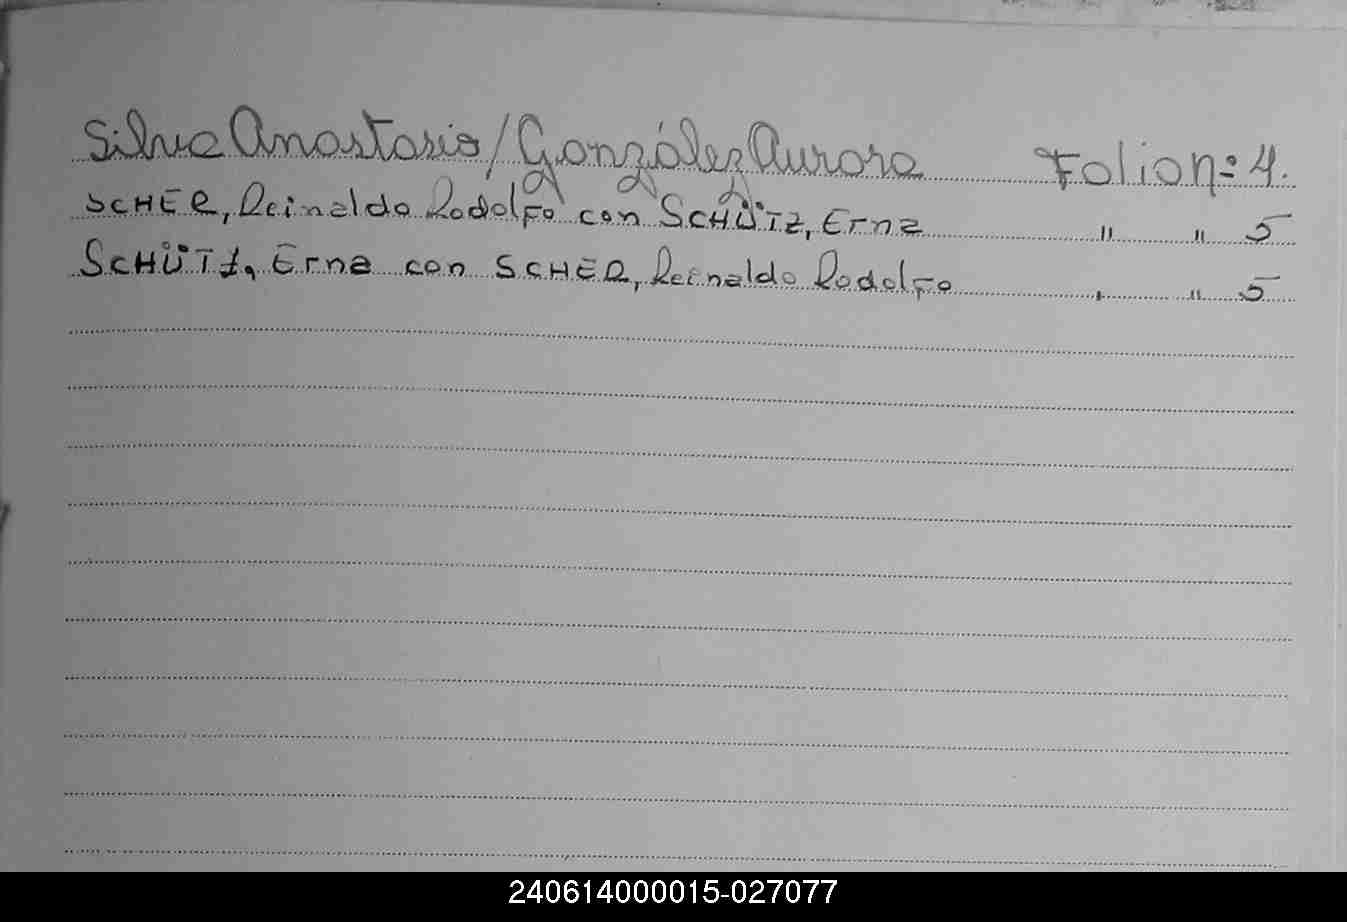 Silva Anastasio/González Aurora Folio n: 4.
SCHER, Reinaldo Rodolfo con SCHÜTZ, Erna " " 5
SCHÜTZ, Erna con SCHER, Reinaldo Rodolfo " " 5
240614000015-027077